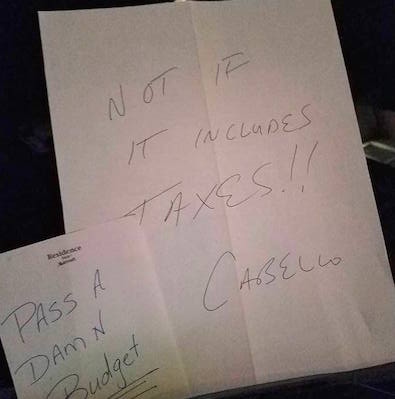 NOT IF
IT INCLUDES
TAXES!!
CABELLO
Residence
Inn
Marriott
PASS A
DAMN
Budget